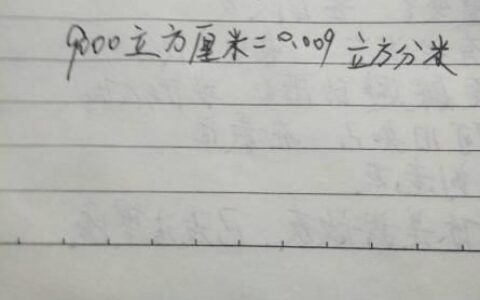 9000立方厘米=0.009立方分米